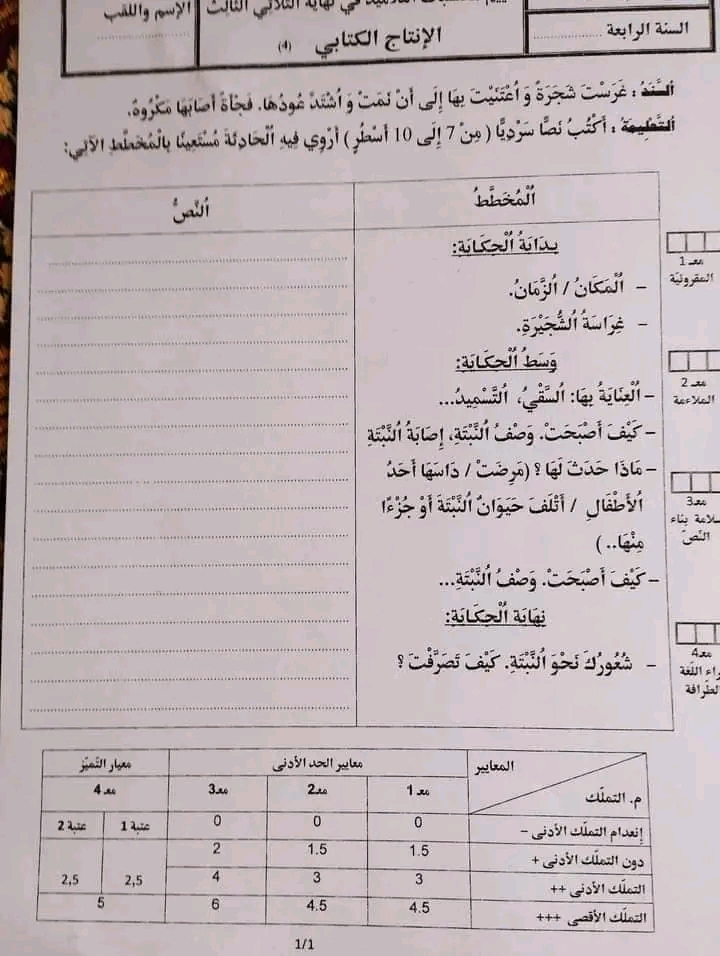 في نهاية الثلاثي الثالث
الإسم واللقب
الإنتاج الكتابي (4)
السنة الرابعة ..............
اُلسَّنَدُ : غَرَسْتَ شَجَرَةً وَ اُعْتَنَيْتَ بِهَا إِلَى أَنْ نَمَتْ وَ اُشْتَدَّ عُودُهَا. فَجْأَةً أَصَابَهَا مَكْرُوهٌ.
اُلتَّعْلِيمَةُ : اُكْتُبْ نَصًّا سَرْدِيًّا ( مِنْ 7 إِلَى 10 أَسْطُرٍ ) اُرْوِي فِيهِ اُلْحَادِثَةَ مُسْتَعِينًا بِالْمُخَطَّطِ الآتِي:
اُلْمُخَطَّطُ
اُلنَّصُّ
بِدَايَةُ اُلْحِكَايَةِ:
- اُلْمَكَانُ / اُلزَّمَانُ.
- غِرَاسَةُ اُلشُّجَيْرَةِ.
وَسَطُ اُلْحِكَايَةِ:
- اُلْعِنَايَةُ بِهَا: اُلسَّقْيُ، اُلتَّسْمِيدُ...
- كَيْفَ أَصْبَحَتْ. وَصْفُ اُلنَّبْتَةِ، إِصَابَةُ اُلنَّبْتَةِ
- مَاذَا حَدَثَ لَهَا ؟ (مَرِضَتْ / دَاسَهَا أَحَدُ
اُلأَطْفَالِ / أَتْلَفَ حَيَوَانٌ اُلنَّبْتَةَ أَوْ جُزْءًا
مِنْهَا.. )
- كَيْفَ أَصْبَحَتْ. وَصْفُ اُلنَّبْتَةِ...
نِهَايَة اُلْحِكَايَةِ:
- شُعُورُكَ نَحْوَ اُلنَّبْتَةِ. كَيْفَ تَصَرَّفْتَ ؟
معـ 1
المقروئية
معـ 2
الملاءمة
معـ3
سلامة بناء
النّصّ
معـ4
اللّغة
المعايير
معايير الحد الأدنى
معيار التّميّز
م. التملّك
معـ 1
معـ2
معـ3
معـ 4
عتبة 1
عتبة 2
إنعدام التملّك الأدنى –
0
0
0
دون التملّك الأدنى +
1.5
1.5
2
التملّك الأدنى ++
3
3
4
2,5
2,5
التملّك الأقصى +++
4.5
4.5
6
5
1/1